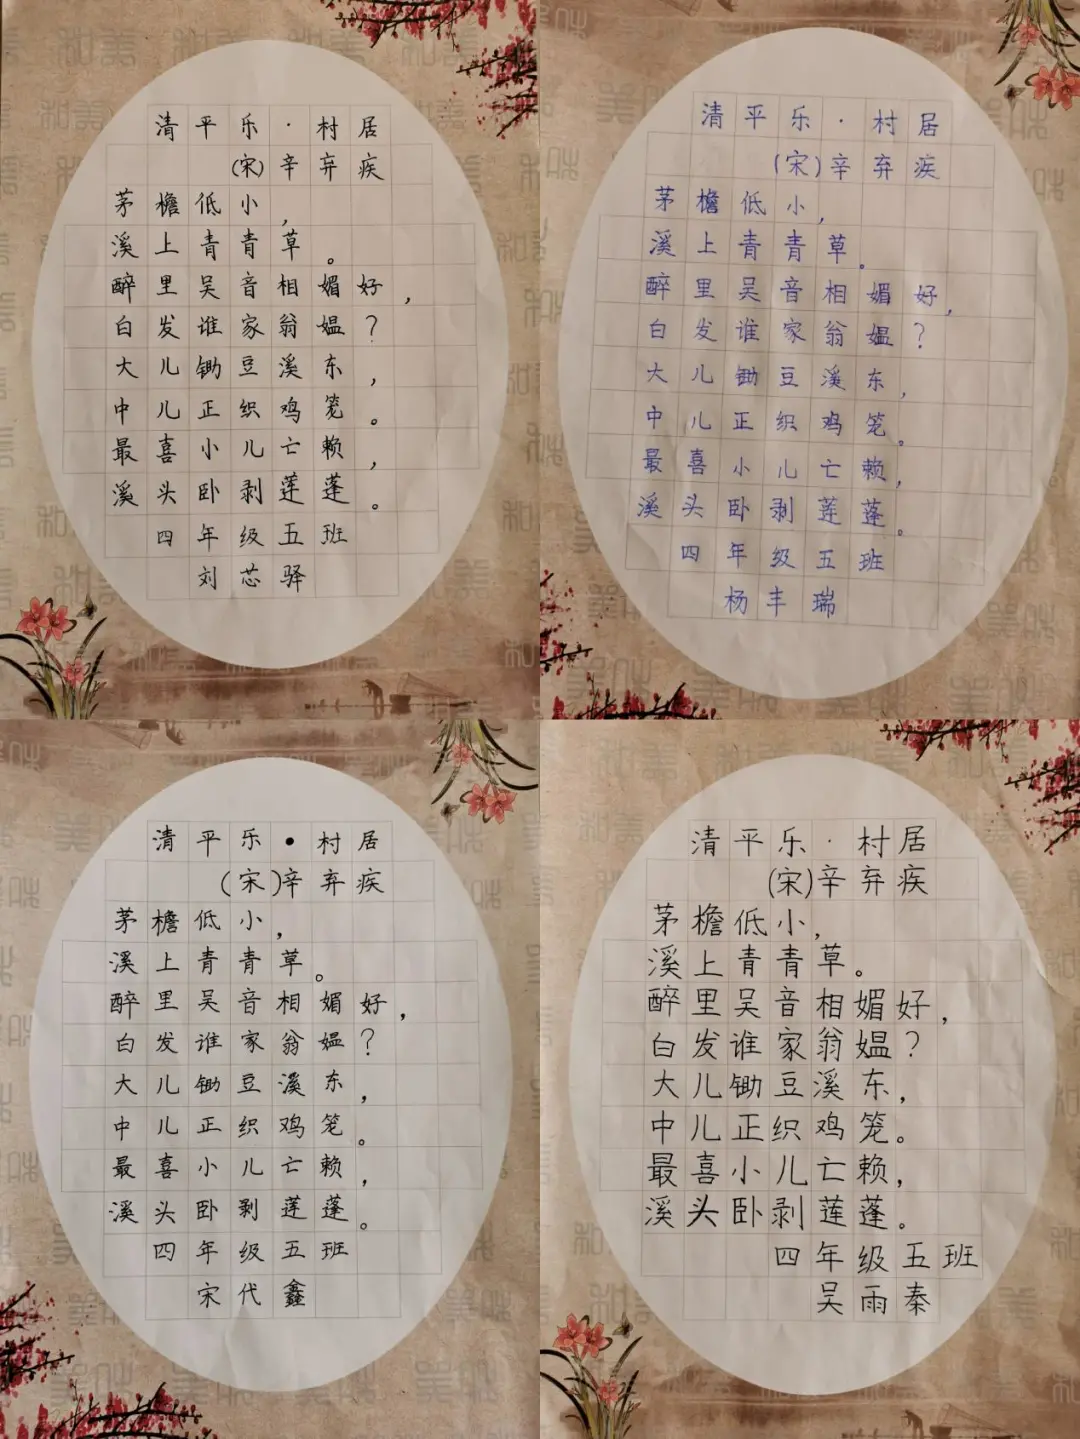 清平乐·村居
(宋)辛弃疾
茅檐低小,
溪上青青草。
醉里吴音相媚好,
白发谁家翁媪?
大儿锄豆溪东,
中儿正织鸡笼。
最喜小儿亡赖,
溪头卧剥莲蓬。
四年级五班
刘芯驿
清平乐·村居
(宋)辛弃疾
茅檐低小,
溪上青青草。
醉里吴音相媚好,
白发谁家翁媪?
大儿锄豆溪东,
中儿正织鸡笼。
最喜小儿亡赖,
溪头卧剥莲蓬。
四年级五班
杨丰瑞
清平乐·村居
(宋)辛弃疾
茅檐低小,
溪上青青草。
醉里吴音相媚好,
白发谁家翁媪?
大儿锄豆溪东,
中儿正织鸡笼。
最喜小儿亡赖,
溪头卧剥莲蓬。
四年级五班
宋代鑫
清平乐·村居
(宋)辛弃疾
茅檐低小,
溪上青青草。
醉里吴音相媚好,
白发谁家翁媪?
大儿锄豆溪东,
中儿正织鸡笼。
最喜小儿亡赖,
溪头卧剥莲蓬。
四年级五班
吴雨秦